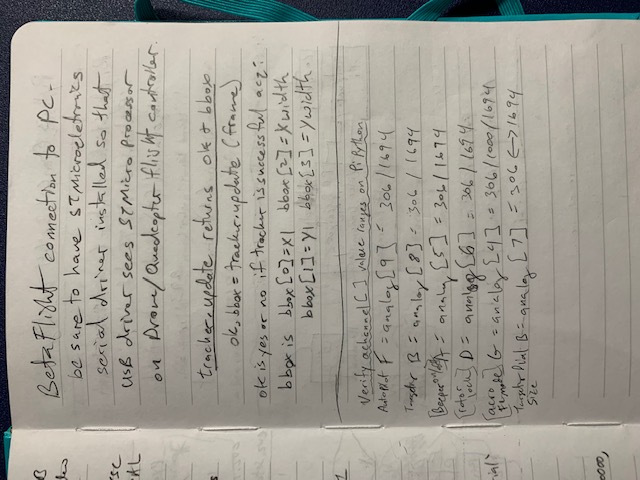 BetaFlight connection to PC.
be sure to have STMicroeletronics
serial driver installed so that
USB driver sees STMicro processor
on Drone/Quadcopter flight controller.
tracker.update returns ok & bbox
ok, bbox = tracker.update (frame)
ok is yes or no if tracker is successful acq.
bbox is bbox[0]=X1 bbox[2]=Xwidth
bbox[1]=Y1 bbox[3]=Ywidth
Verify achannel[ ] value ranges on PiPython
AutoPilot F = analog [9] = 306/1694
B = analog [8] = 306 / 1694
[Beeper on/off] A = analog [5] = 306/1694
[rotor lock] D = analog [6] = 306/1694
[acro Fltmode] G = analog [4] = 306/1000/1694
Target Dial B = analog [7] = 306 ↔ 1694
Size
B
USC
AL
0000,